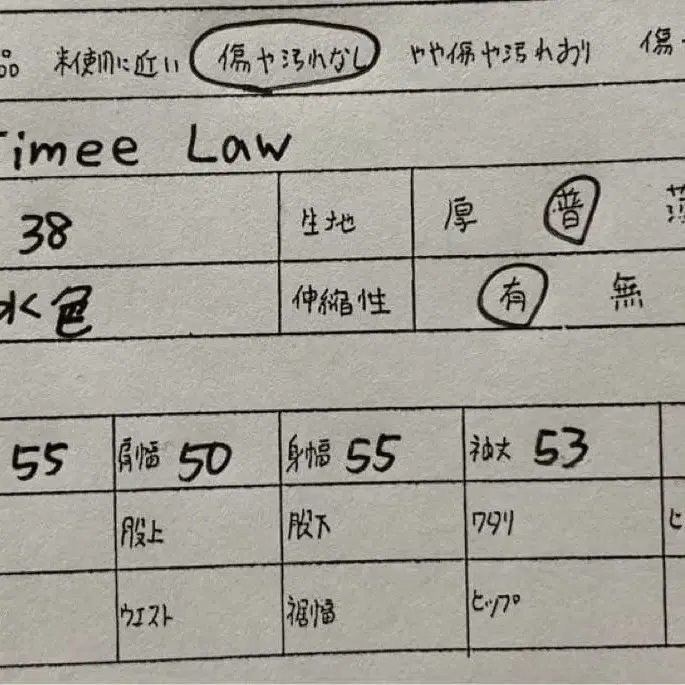 品 未使用に近い 傷や汚れなし やや傷や汚れあり 傷
Timee Law
38 生地 厚 普 薄
水色 伸縮性 有 無
55 肩幅 50 身幅 55 袖丈 53
股上 股下 ワタリ ヒ
ウエスト 裾幅 ヒップ